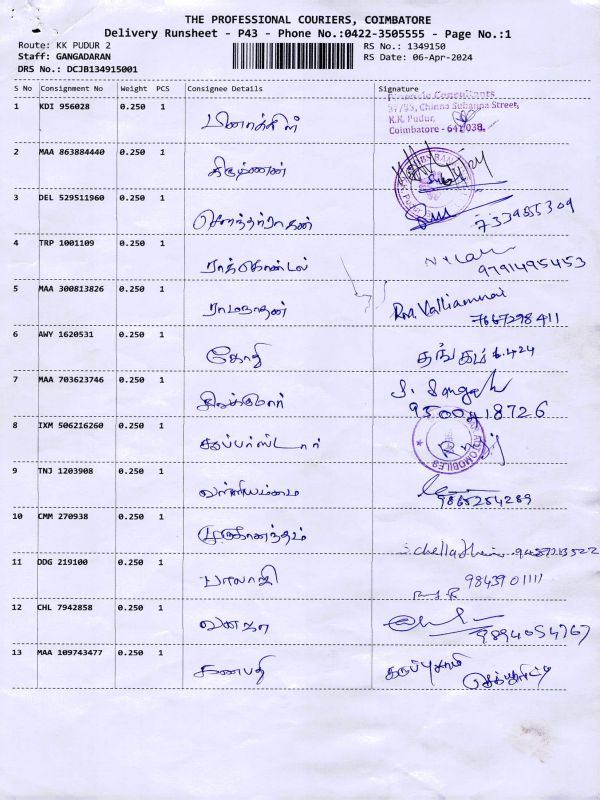 THE PROFESSIONAL COURIERS, COIMBATORE
Delivery Runsheet - P43 - Phone No.:0422-3505555 - Page No.:1
Route: KK PUDUR 2
Staff: GANGADARAN
DRS No.: DCJB134915001
RS No.: 1349150
RS Date: 06-Apr-2024
S No Consignment No Weight PCS Consignee Details Signature
1 KDI 956028 0.250 1 மீனாக்சி
Consultants
37/33, Chinna Subanna Street,
K.K. Pudur,
Coimbatore - 641 038.
2 MAA 863884440 0.250 1 கிருஷ்ணன்
3 DEL 529511960 0.250 1 சௌந்தர்ராகன்
7339555309
4 TRP 1001109 0.250 1
9791495453
5 MAA 300813826 0.250 1 ராமநாதன் Rm. Valliammai
7667298411
6 AWY 1620531 0.250 1 கோதி தங்கம் 6.4.24
7 MAA 703623746 0.250 1 S. Sangesh
9500818726
8 IXM 506216260 0.250 1 சூப்பர்ஸ்டார்
AUTOMOBILES
9 TNJ 1203908 0.250 1 வள்ளியம்மை
9865254289
10 CMM 270938 0.250 1 முருகானந்தம்
11 DDG 219100 0.250 1 பாலாஜி 9843901111
12 CHL 7942858 0.250 1 வனஜா
9894054767
13 MAA 109743477 0.250 1 கணபதி கருப்புசாமி